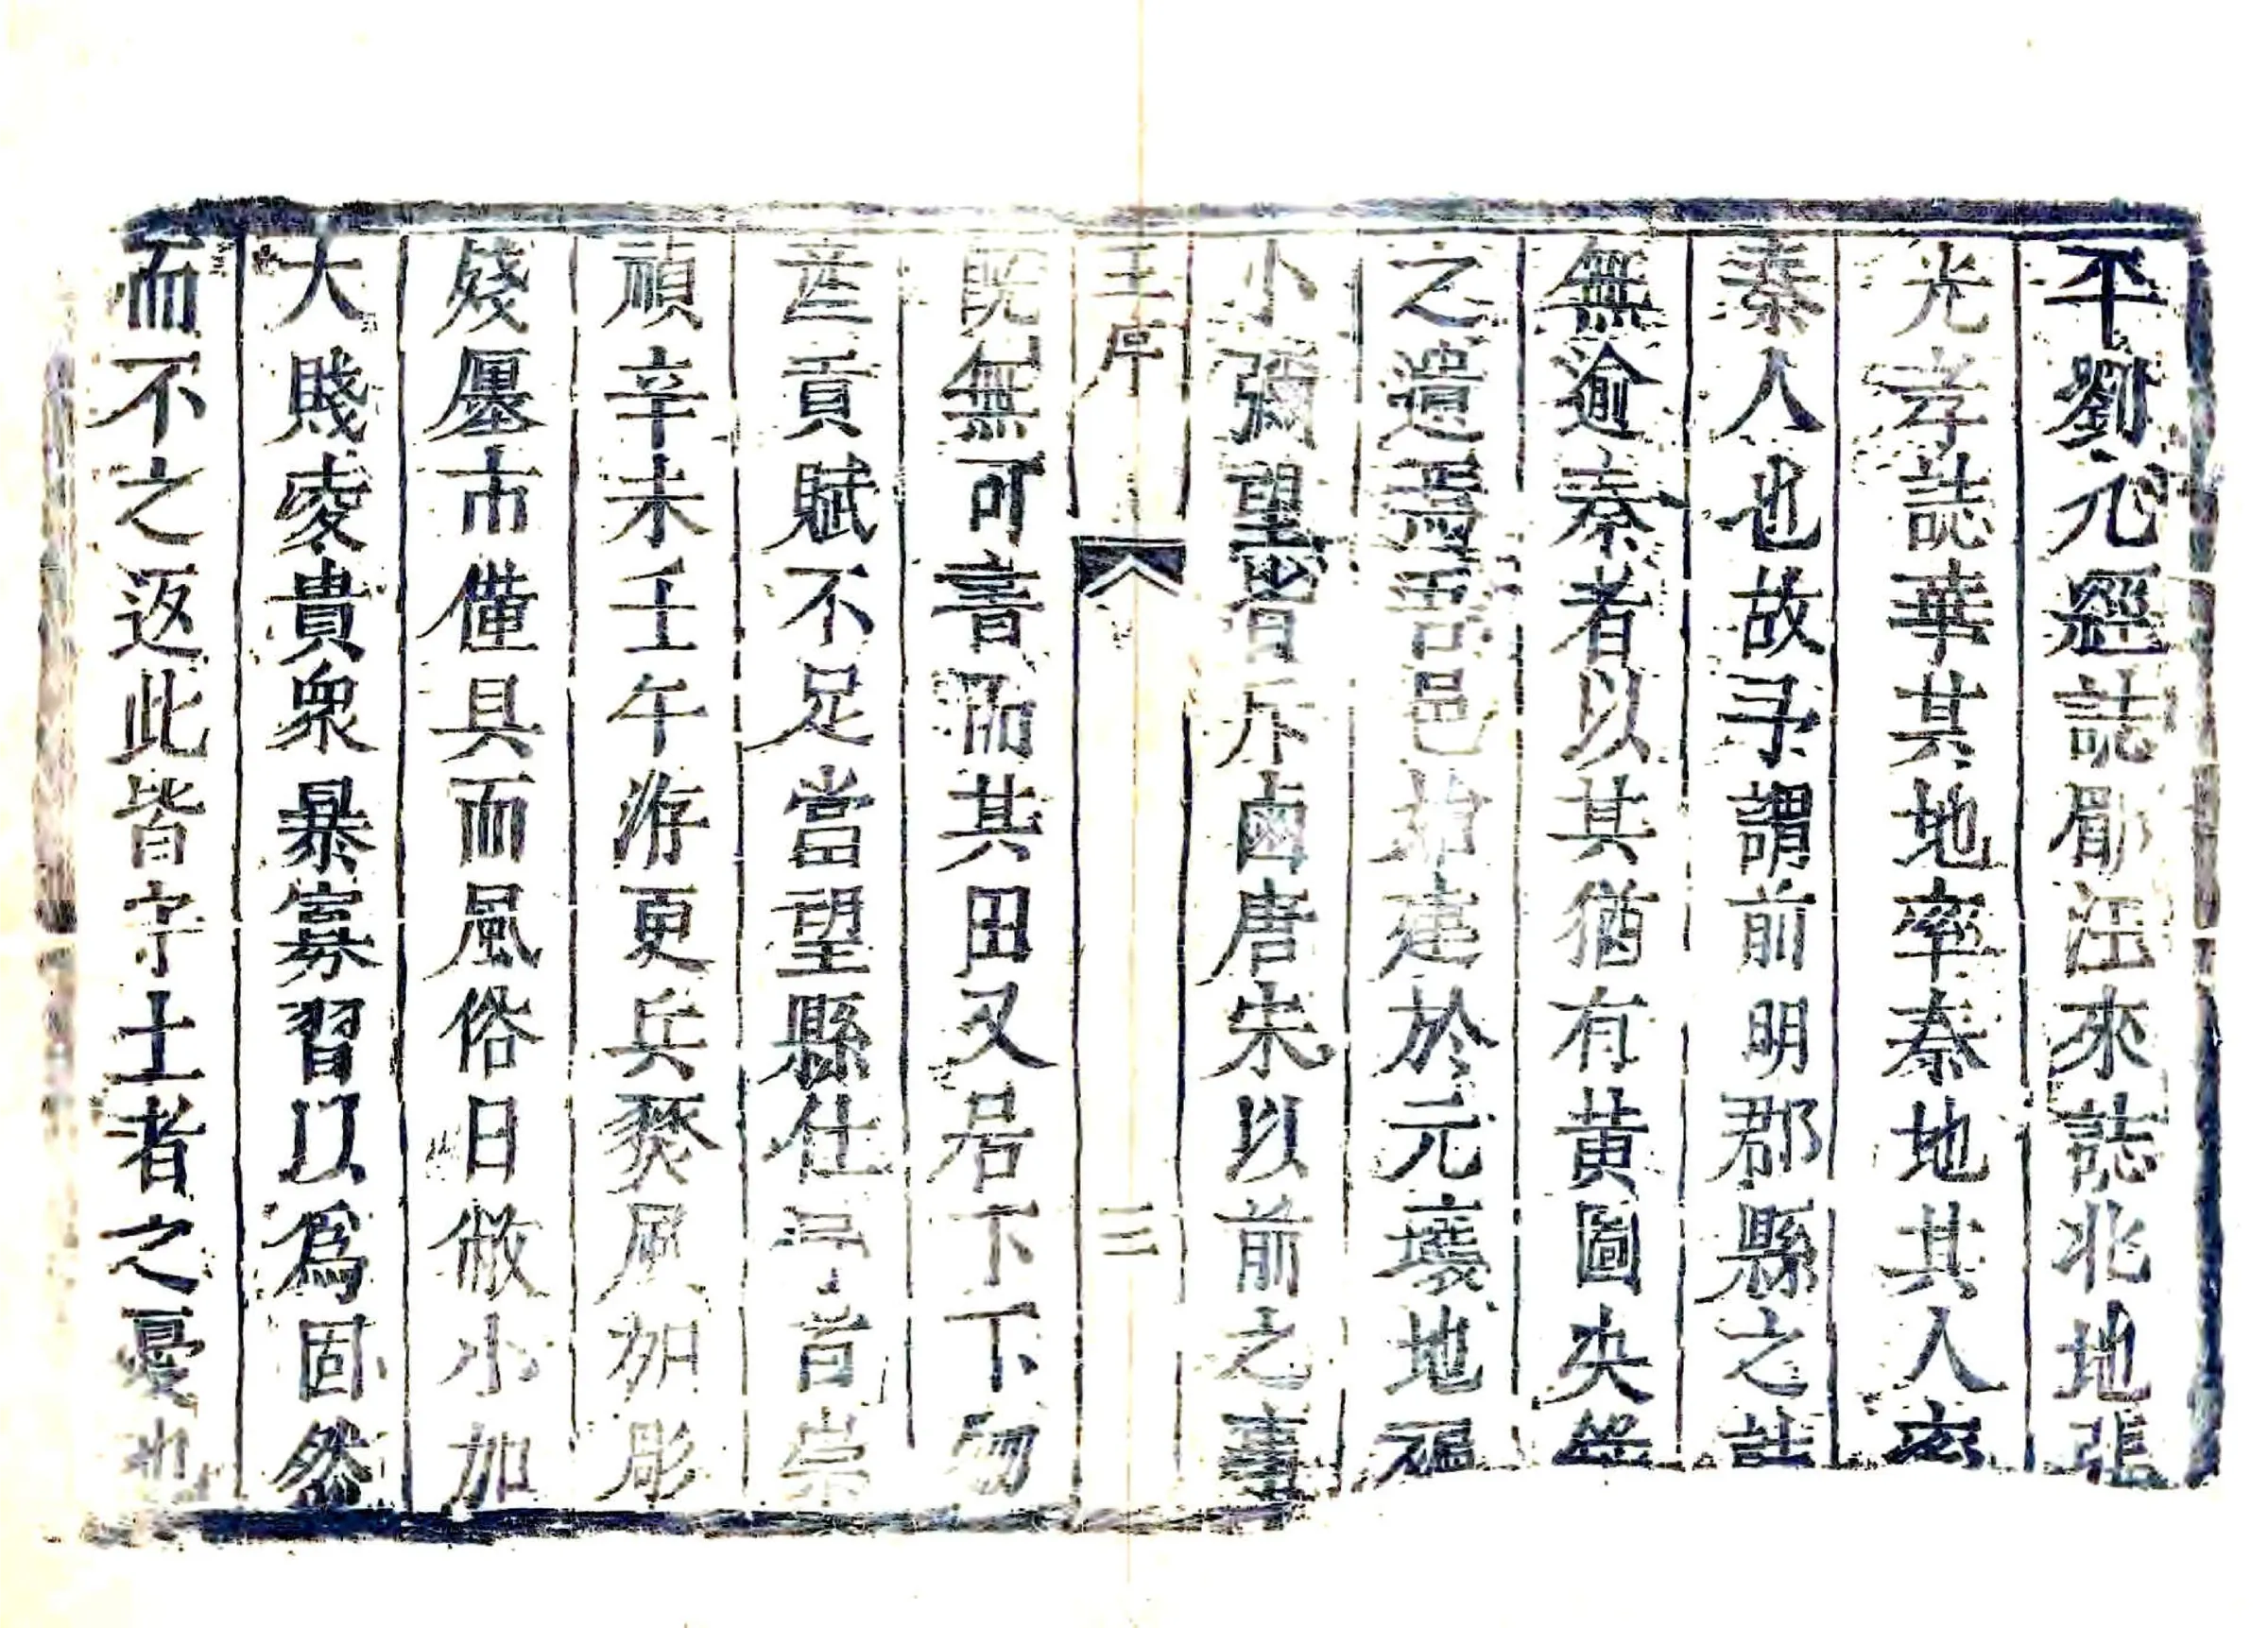 平劉九經誌郿汪來誌北地張
光孝誌華其地率秦地其人亦
秦人也故予謂前明郡縣之誌
無逾秦者以其猶有黃圖決錄
之遺焉吾邑 建於元壤地褊
小彌望 斥鹵唐宋以前之事
王序
三
既無可書而其田又居下下物
產貢賦不足當望縣仕 者崇
禎辛未壬午洊更兵燹 加彫
殘廛市僅具而風俗日敝小加
大賤凌貴衆暴寡習以爲固然
而不之返此皆守土者之憂也